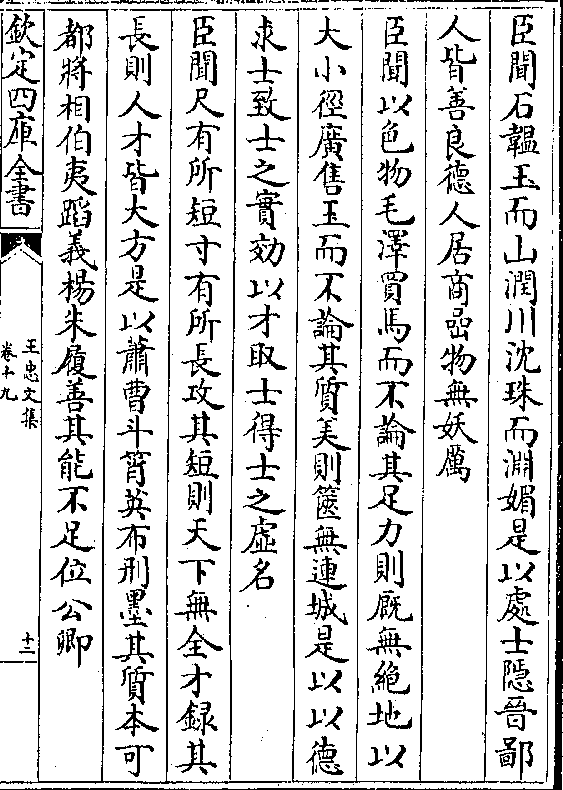 臣聞石韞玉而山潤川沈珠而淵媚是以處士隱晉鄙
人皆善良德人居商嵒物無妖厲
臣聞以色物毛澤買馬而不論其足力則厩無絶地以
大小徑廣售玉而不論其質美則篋無連城是以以德
求士致士之實効以才取士得士之虛名
臣聞尺有所短寸有所長攻其短則天下無全才録其
長則人才皆大方是以蕭曹斗筲英布刑墨其質本可
都將相伯夷蹈義楊朱履善其能不足位公卿
欽定四庫全書
王忠文集
卷十九
十二